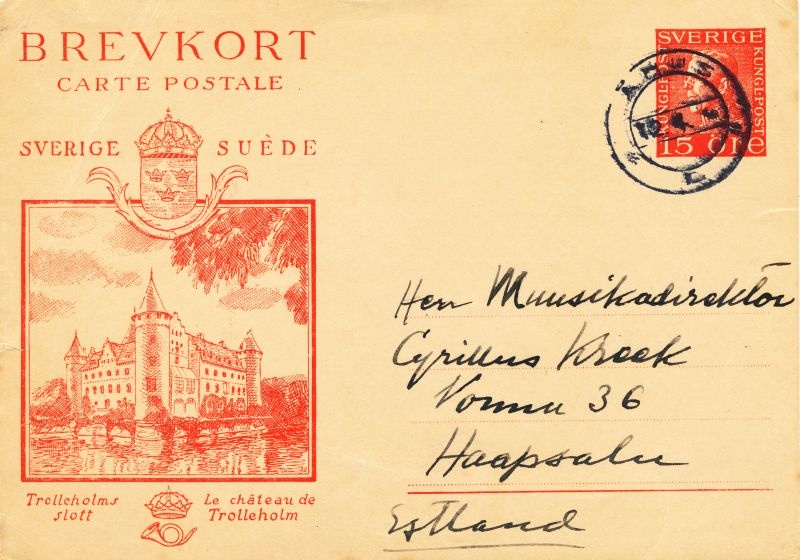 BREVKORT
CARTE POSTALE
SVERIGE SUÈDE
Trolleholms slott
Le château de Trolleholm
SVERIGE
KUNGL·POST
KUNGL·POST
15 ÖRE
Herr Muusikadirektor
Cyrillus Kreek
36
Haapsalu
Estland